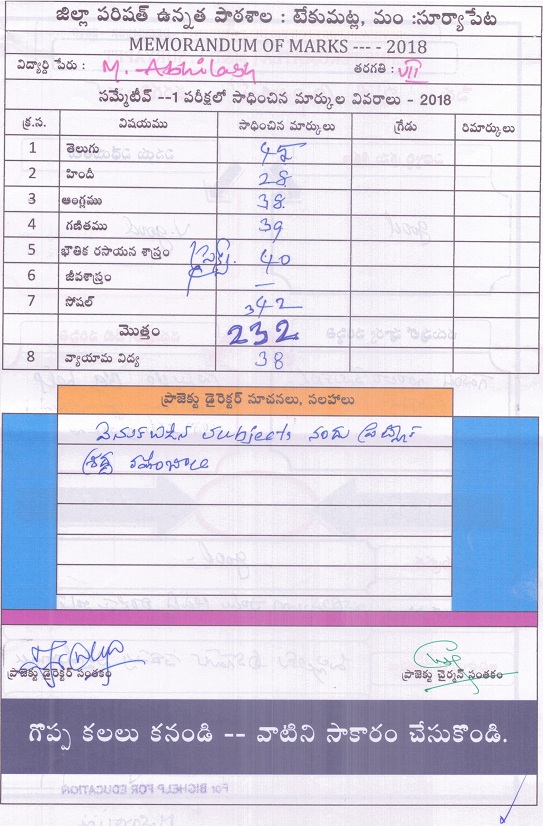 జిల్లా పరిషత్ ఉన్నత పాఠశాల : టేకుమట్ల, మం :సూర్యాపేట
MEMORANDUM OF MARKS ---- - 2018
విద్యార్థి పేరు : M. Abhilash తరగతి : VII
సమ్మేటీవ్ --1 పరీక్షలో సాధించిన మార్కుల వివరాలు - 2018
క్ర.స. విషయము సాధించిన మార్కులు గ్రేడు రిమార్కులు
1 తెలుగు 45
2 హిందీ 28
3 ఆంగ్లము 38
4 గణితము 39
5 భౌతిక రసాయన శాస్త్రం 40
6 జీవశాస్త్రం —
7 సోషల్ 42
మొత్తం 232
8 వ్యాయామ విద్య 38
ప్రాజెక్టు డైరెక్టర్ సూచనలు, సలహాలు
వెనుకబడిన subjects నందు
శ్రద్ధ
ప్రాజెక్టు డైరెక్టర్ సంతకం ప్రాజెక్టు చైర్మన్ సంతకం
గొప్ప కలలు కనండి -- వాటిని సాకారం చేసుకొండి.
For BIGHELP FOR EDUCATION